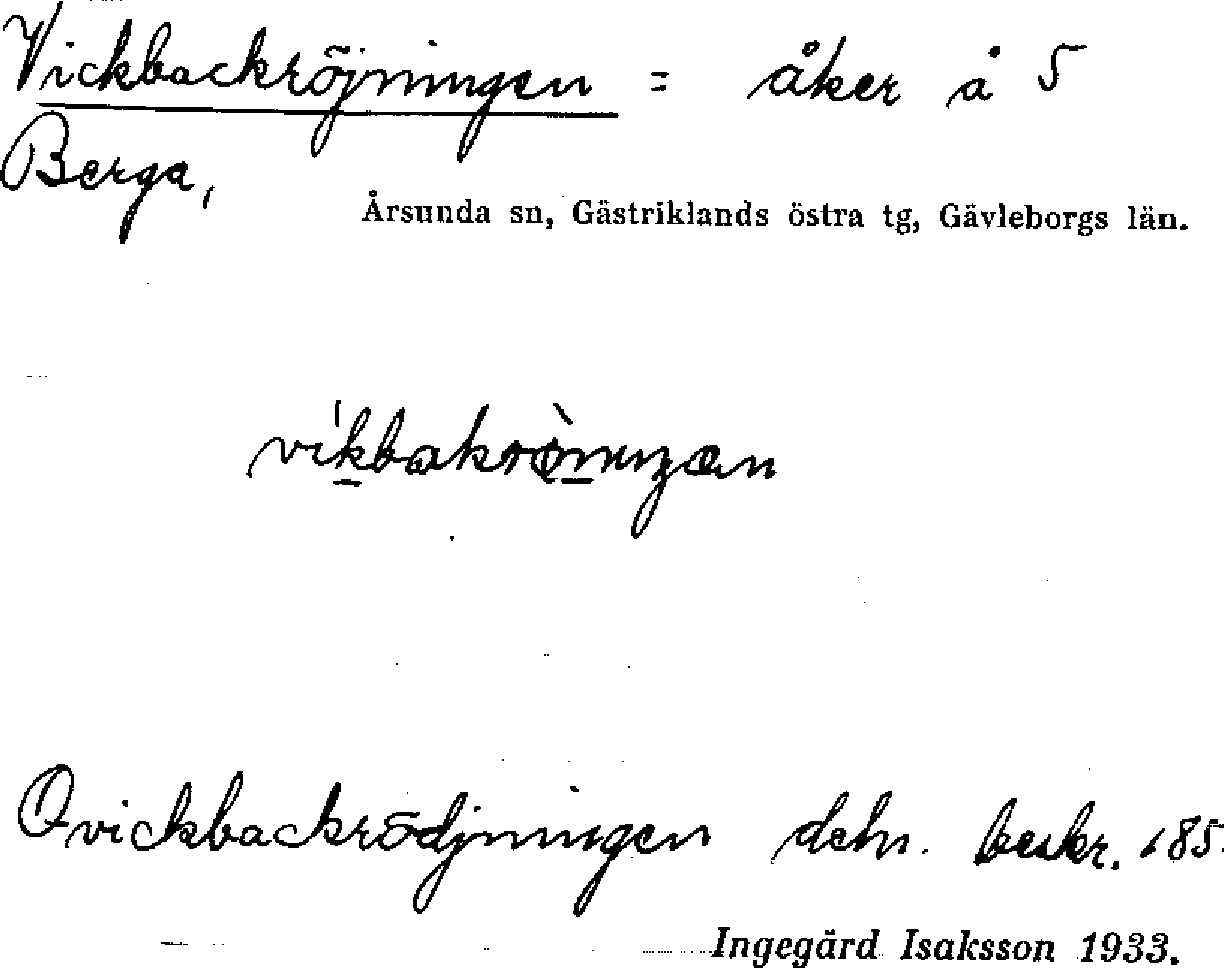 Vickbackröjningen = åker å 5
Berga,
Årsunda sn, Gästriklands östra tg, Gävleborgs län.
Qvickbackrödjningen dehn. beskr. 185
Ingegärd Isaksson 1933.